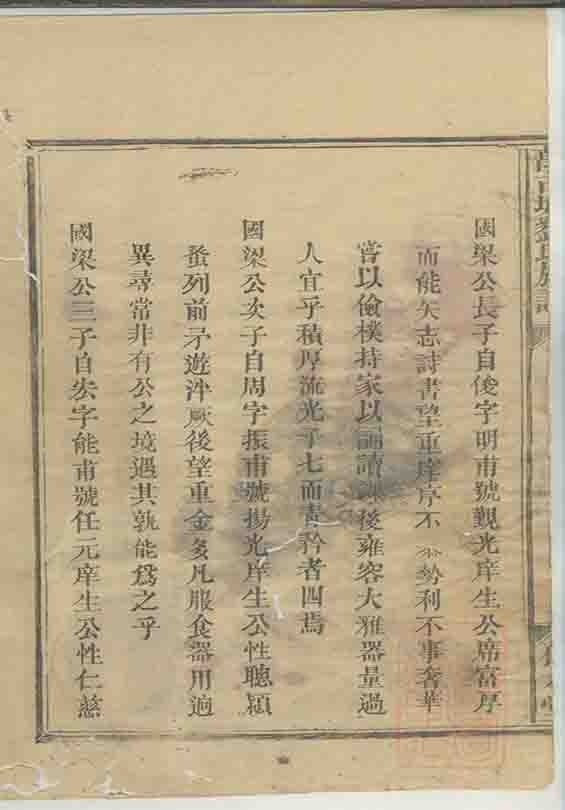 劉氏族譜
國梁公長子自俊字明甫號覲光庠生公席富厚
而能矢志詩書望重庠序不勢利不事奢華
嘗以儉樸持家以誦讀課後雍容大雅器量過
人宜乎積厚流光子七而青衿者四焉
國梁公次子自周字振甫號揚光庠生公性聰穎
蚤列前矛遊泮厥後望重金多凡服食器用迥
異尋常非有公之境遇其孰能為之乎
國梁公三子自宏字能甫號任元庠生公性仁慈